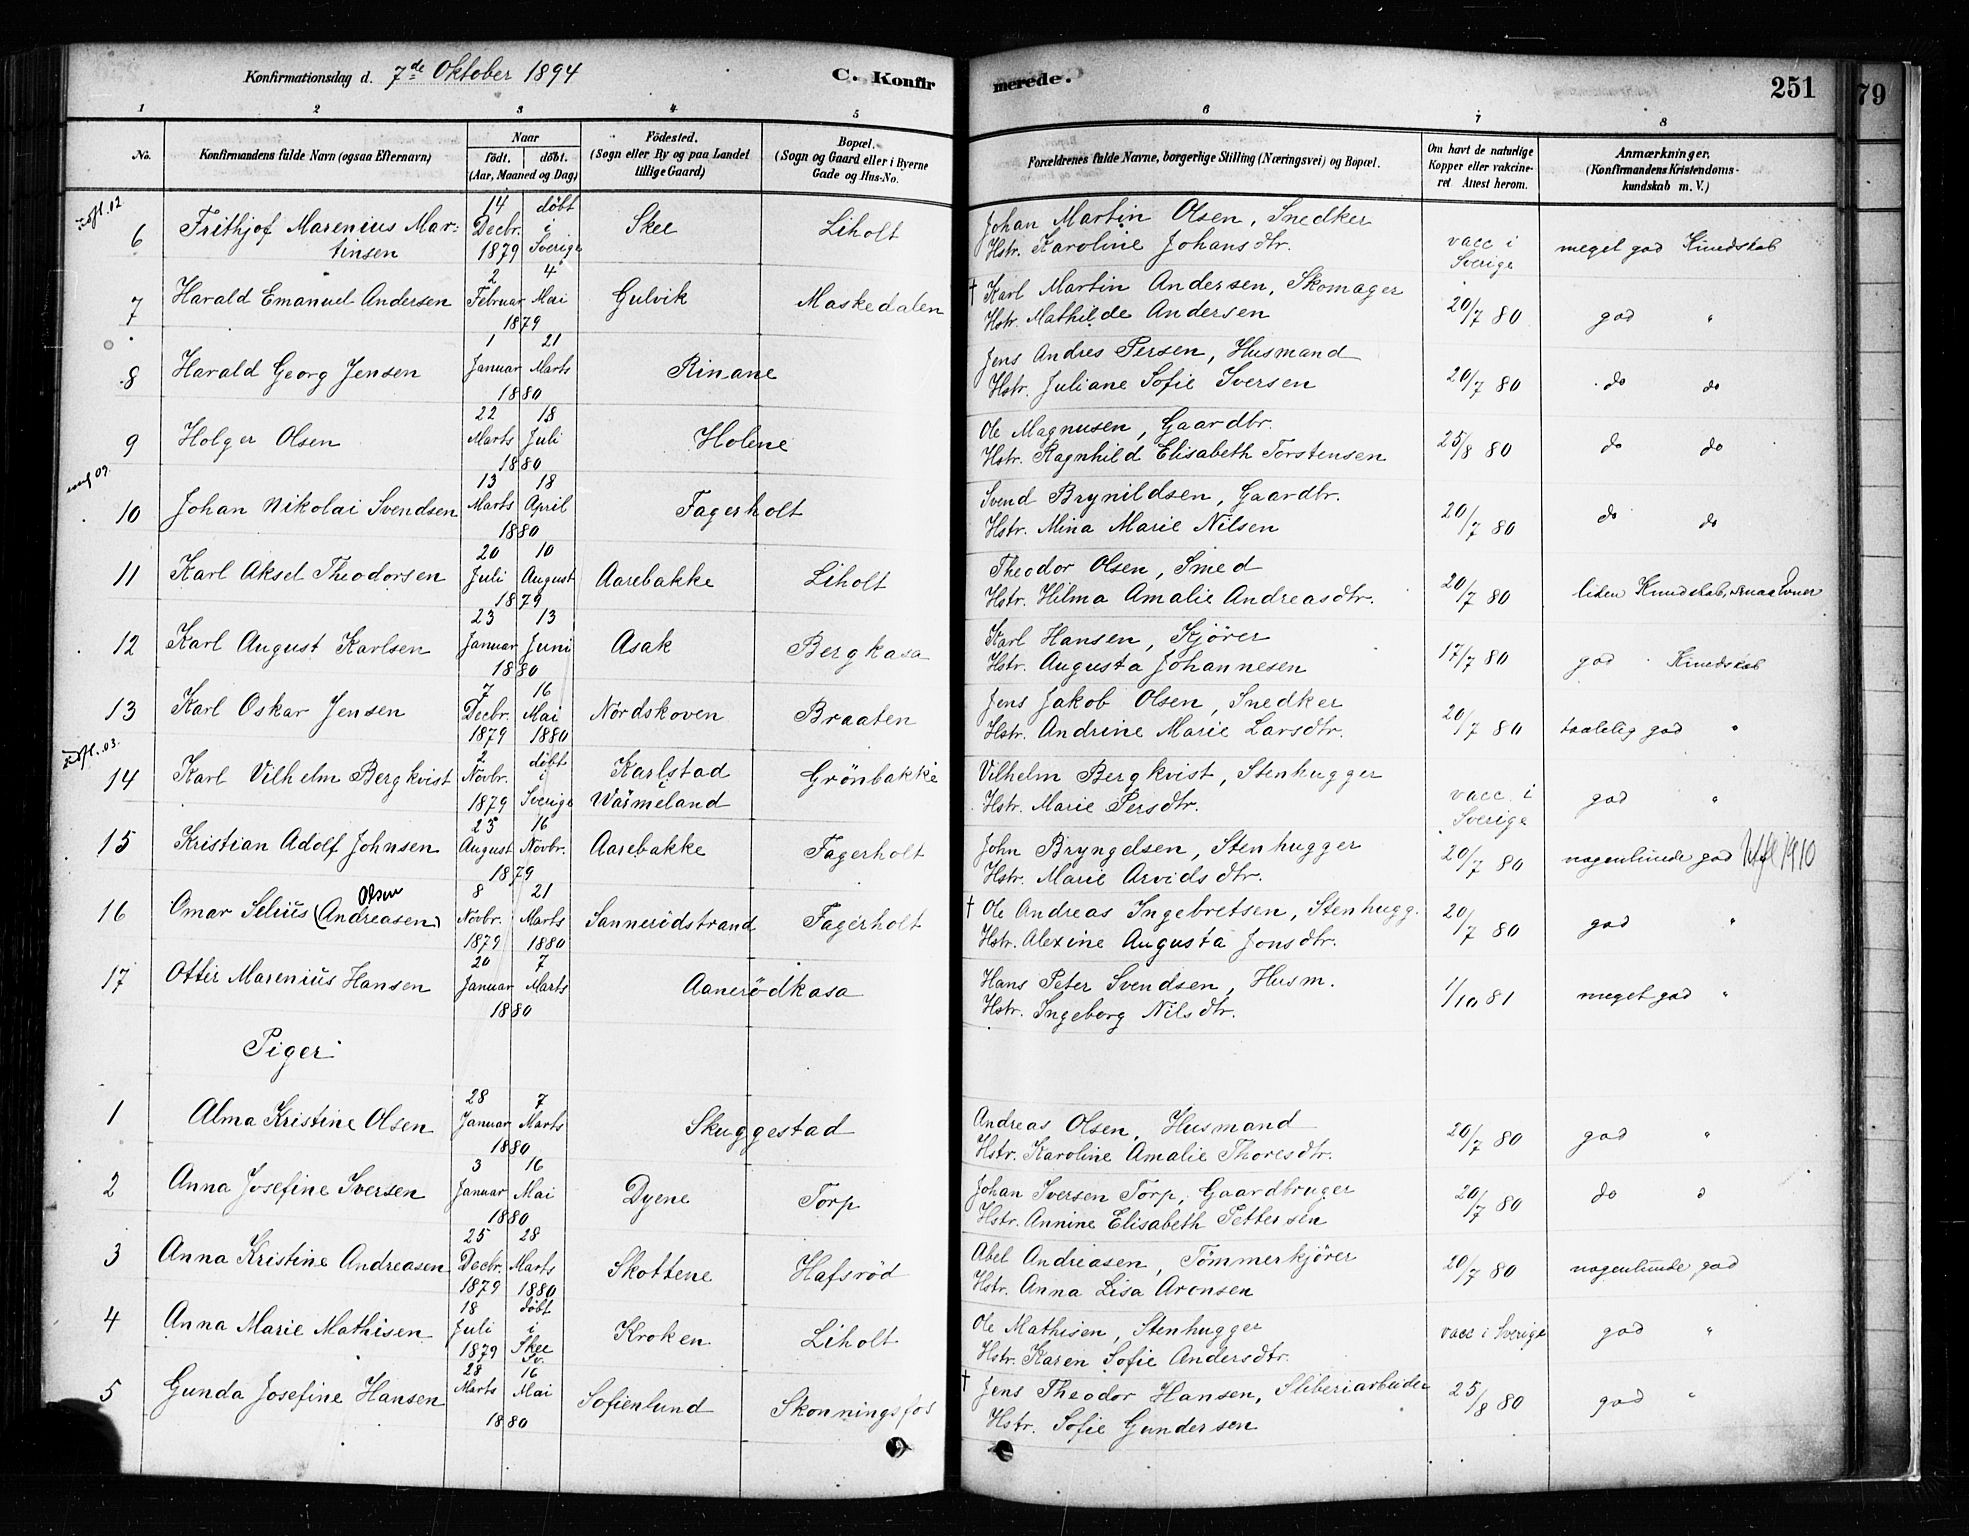 Konfirmationsdag d. 7de Oktober 1894 C. Konfirmerede. 251
79
1 2 3 4 5 6 7 8
No. Konfirmandens fulde Navn (ogsaa Efternavn) Naar født. døbt. (Aar, Maaned og Dag) Födested. (Sogn eller By og paa Landet tillige Gaard) Bopæl. (Sogn og Gaard eller i Byerne Gade og Hus-No. Forældrenes fulde Navne, borgerlige Stilling (Næringsvei) og Bopæl. Om havt de naturlige Kopper eller vakcineret Attest herom. Anmærkninger. (Konfirmandens Kristendomskundskab m. V.)
udfl. 02
6 Frithjof Marenius Martinsen 14 Decbr. 1879 døbt i Sverige Skee Liholt Johan Martin Olsen, Snedker Hstr. Karoline Johansdtr. vacc i Sverige meget god Kundskab
7 Harald Emanuel Andersen 2 Februar 4 Mai 1879 Gulvik Maskedalen † Karl Martin Andersen, Skomager Hstr. Mathilde Andersen 20/7 80 god "
8 Harald Georg Jensen 1 Januar 21 Marts 1880 Rinane Jens Andres Persen, Husmand Hstr. Juliane Sofie Iversen 20/7 80 do do
9 Holger Olsen 22 Marts 18 Juli 1880 Holene Ole Magnusen, Gaardbr. Hstr. Ragnhild Elisabeth Torstensen 25/8 80 do do
10 Johan Nikolai Svendsen 13 Marts 18 April 1880 Fagerholt Svend Brynildsen, Gaardbr. Hstr. Mina Marie Nilsen 20/7 80 do do
11 Karl Aksel Theodorsen 20 Juli 10 August 1879 Aarebakke Liholt Theodor Olsen, Smed Hstr. Hilma Amalie Andreasdtr. 20/7 80 liden Kundskab, smaa Evner
12 Karl August Karlsen 23 Januar 13 Juni 1880 Asak Bergkasa Karl Hansen, Kjører Hstr. Augusta Johannesen 17/7 80 god Kundskab
13 Karl Oskar Jensen 7 Decbr. 1879 16 Mai 1880 Nordskoven Braaten Jens Jakob Olsen, Snedker Hstr. Andrine Marie Larsdtr. 20/7 80 taalelig god "
udfl. 03.
14 Karl Vilhelm Bergkvist 2 Novbr. 1879 døbt i Sverige Karlstad i Wärmeland Grönbakke Vilhelm Bergkvist, Stenhugger Hstr. Marie Persdtr. vacc. i Sverige god "
15 Kristian Adolf Johnsen 23 August 16 Novbr. 1879 Aarebakke Fagerholt John Bryngelsen, Stenhugger Hstr. Marie Arvidsdtr. 20/7 80 nogenlunde god Utfl 1910
16 Omar Selius (Andreasen) Olsen 8 Novbr. 1879 21 Marts 1880 Sannerödstrand Fagerholt † Ole Andreas Ingebretsen, Stenhugg. Hstr. Alexine Augusta Jonsdtr. 20/7 80 god "
17 Otter Marenius Hansen 20 Januar 7 Marts 1880 Aanerödkasa Hans Peter Svendsen, Husm. Hstr. Ingeborg Nilsdtr. 1/10 81 meget god "
Piger
1 Alma Kristine Olsen 28 Januar 7 Marts 1880 Skuggestad Andreas Olsen, Husmand Hstr. Karoline Amalie Thoresdtr. 20/7 80 god "
2 Anna Josefine Iversen 3 Januar 16 Mai 1880 Dyene Torp Johan Iversen Torp, Gaardbruger Hstr. Annine Elisabeth Pettersen 20/7 80 do
3 Anna Kristine Andreasen 25 Decbr. 1879 28 Marts 1880 Skottene Hafsröd Abel Andreasen, Tömmerkjører Hstr. Anna Lisa Aronsen 20/7 80 nogenlunde god
4 Anna Marie Mathisen 18 Juli 1879 døbt i Skee Sv. Kroken Liholt Ole Mathisen, Stenhugger Hstr. Karen Sofie Andersdtr. vacc i Sverige god "
5 Gunda Josefine Hansen 28 Marts 16 Mai 1880 Sofienlund Skonningsfos † Jens Theodor Hansen, Sliberiarbeider Hstr. Sofie Gundersen 25/8 80 god "